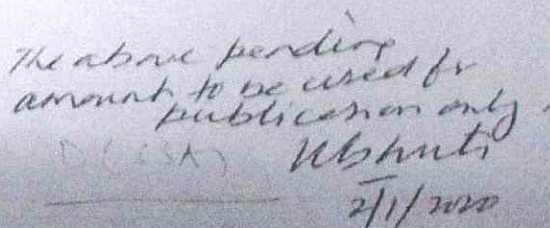 The above pending
amount to be used for
publication only.
D (CSA)
2/1/2020